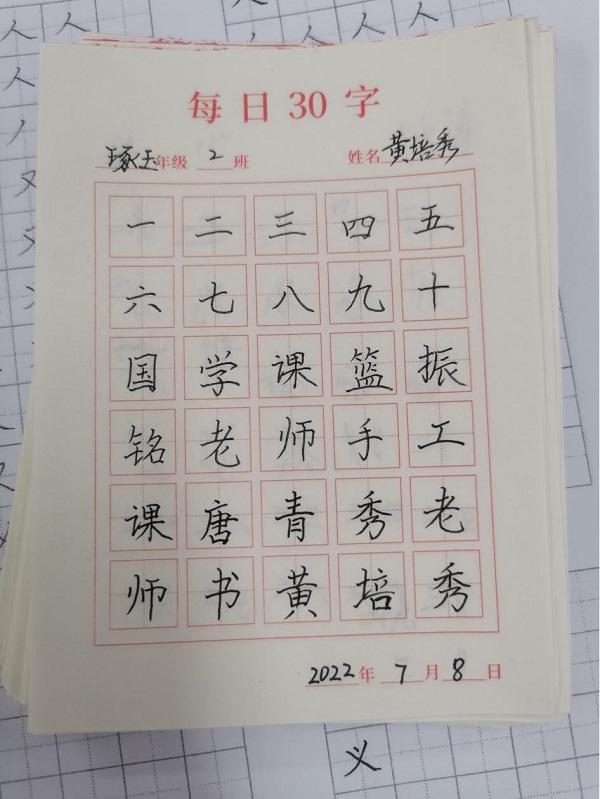 每日30字
琢玉年级 2 班 姓名 黄培秀
一二三四五
六七八九十
国学课篮振
铭老师手工
课唐青秀老
师书黄培秀
2022年 7月 8日
义